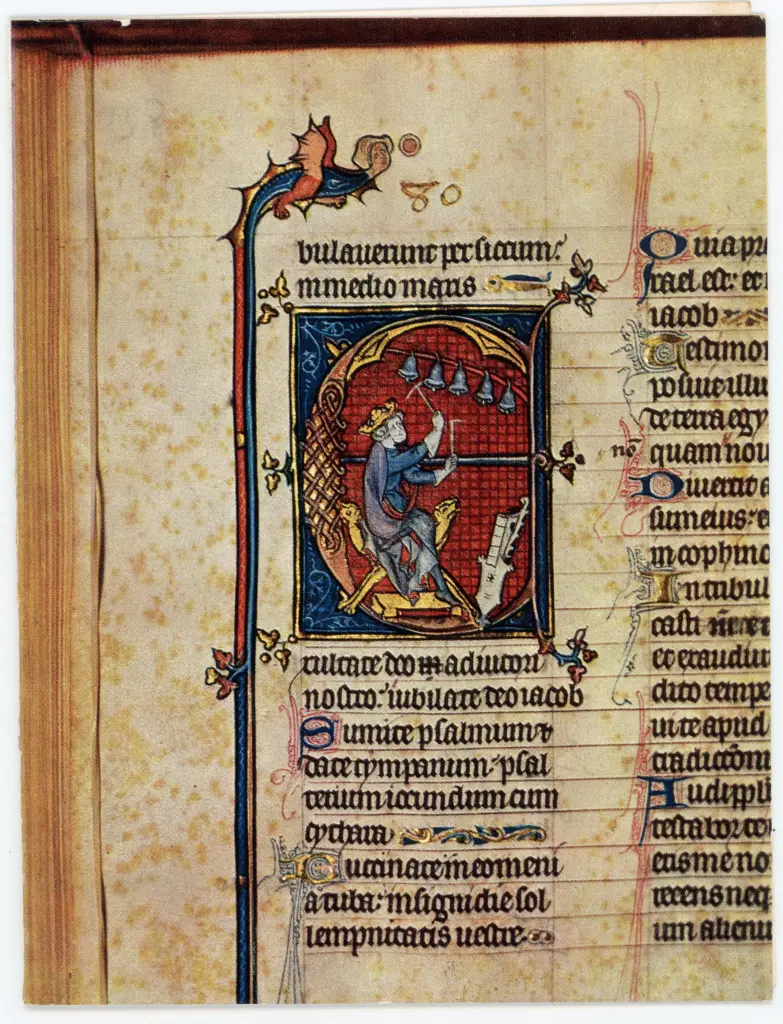 bulauerunt per siccum:
in medio maris
Exultate deo adiutori
nostro: iubilate deo iacob
Sumite psalmum &
date tympanum: psal
terium iocundum cum
cythara
Buccinate in eomeni
a tuba: insigni die sol
lempnitatis uestre
Quia pre
israel est: et
iacob
Testimo
posuit illu
de terra egy
quam nou
Diuertit a
sum eius:
in cophino
In tribul
casti
et exaudiu
dito tempe
ui te apud
Audi ppl
testabor te
recens neq
um alienu